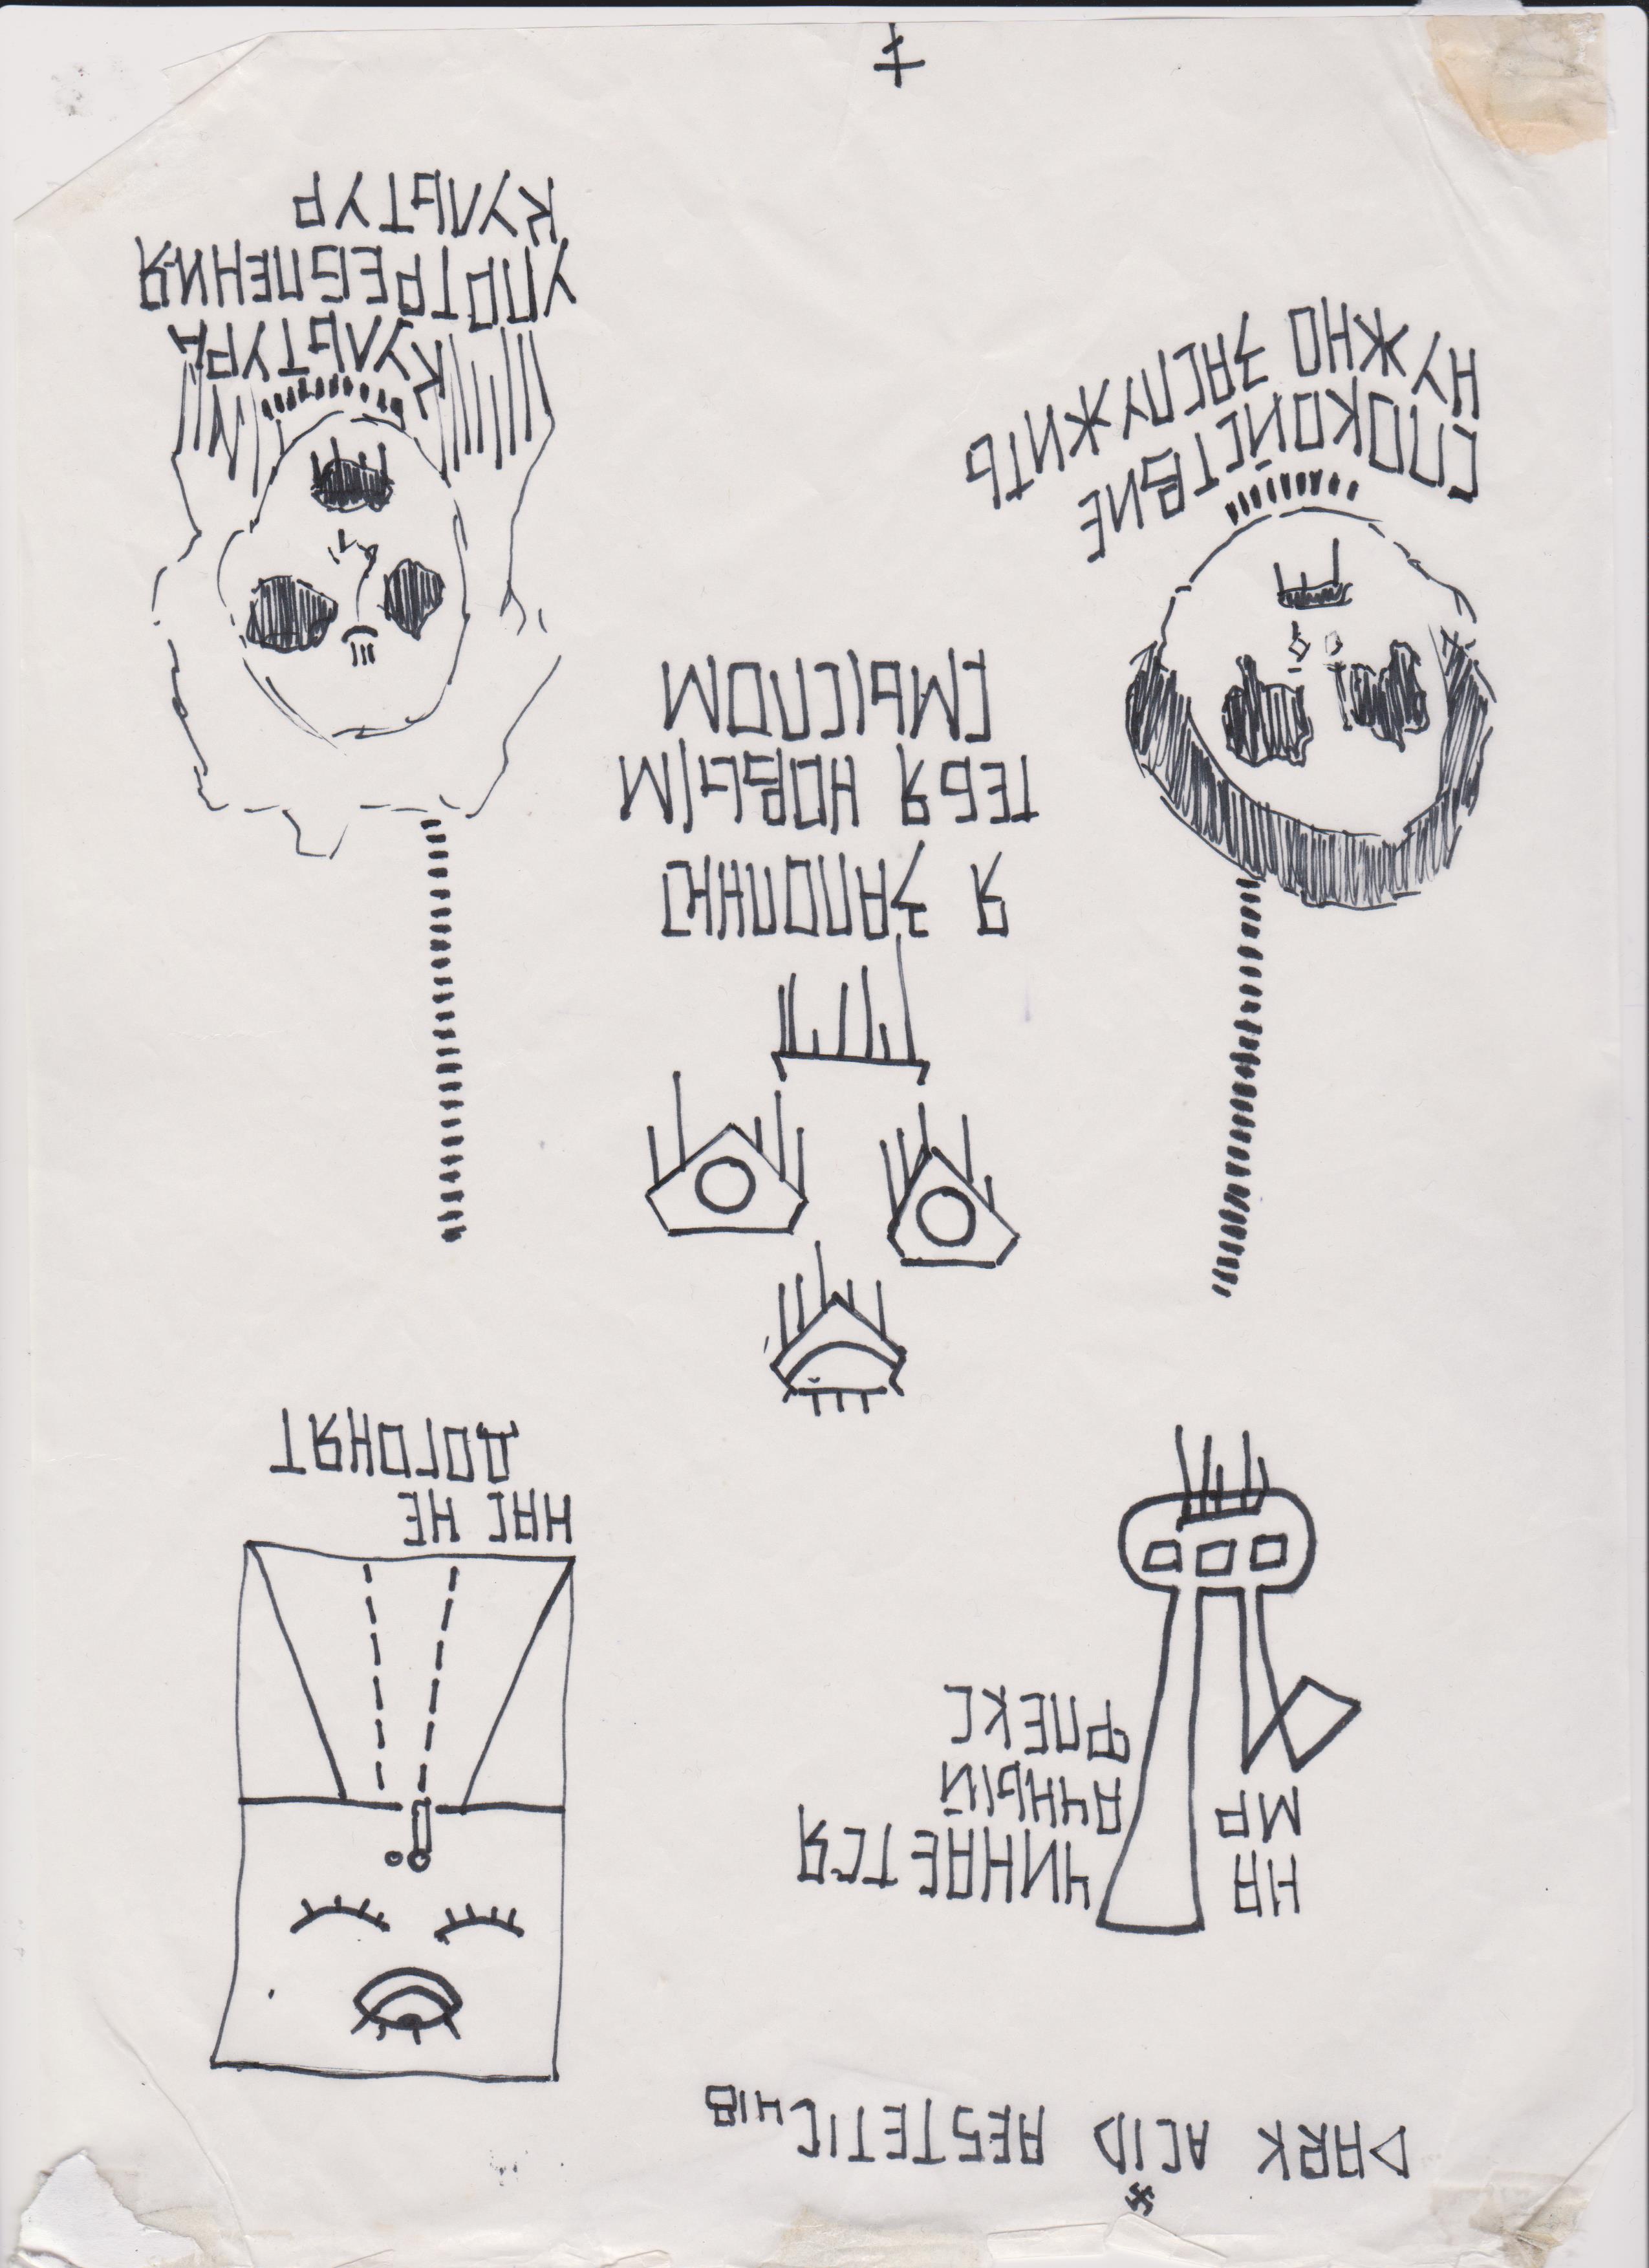 DARK ACID AESTETIC 418
НА ЧИНАЕТСЯ
МР АЧНЫЙ
ФЛЕКС
НАС НЕ
ДОГОНЯТ
Я ЗАПОЛНЮ
ТЕБЯ НОВЫМ
СМЫСЛОМ
СПОКОЙСТВИЕ
НУЖНО ЗАСЛУЖИТЬ
КУЛЬТУРА
УПОТРЕБЛЕНИЯ
КУЛЬТУР